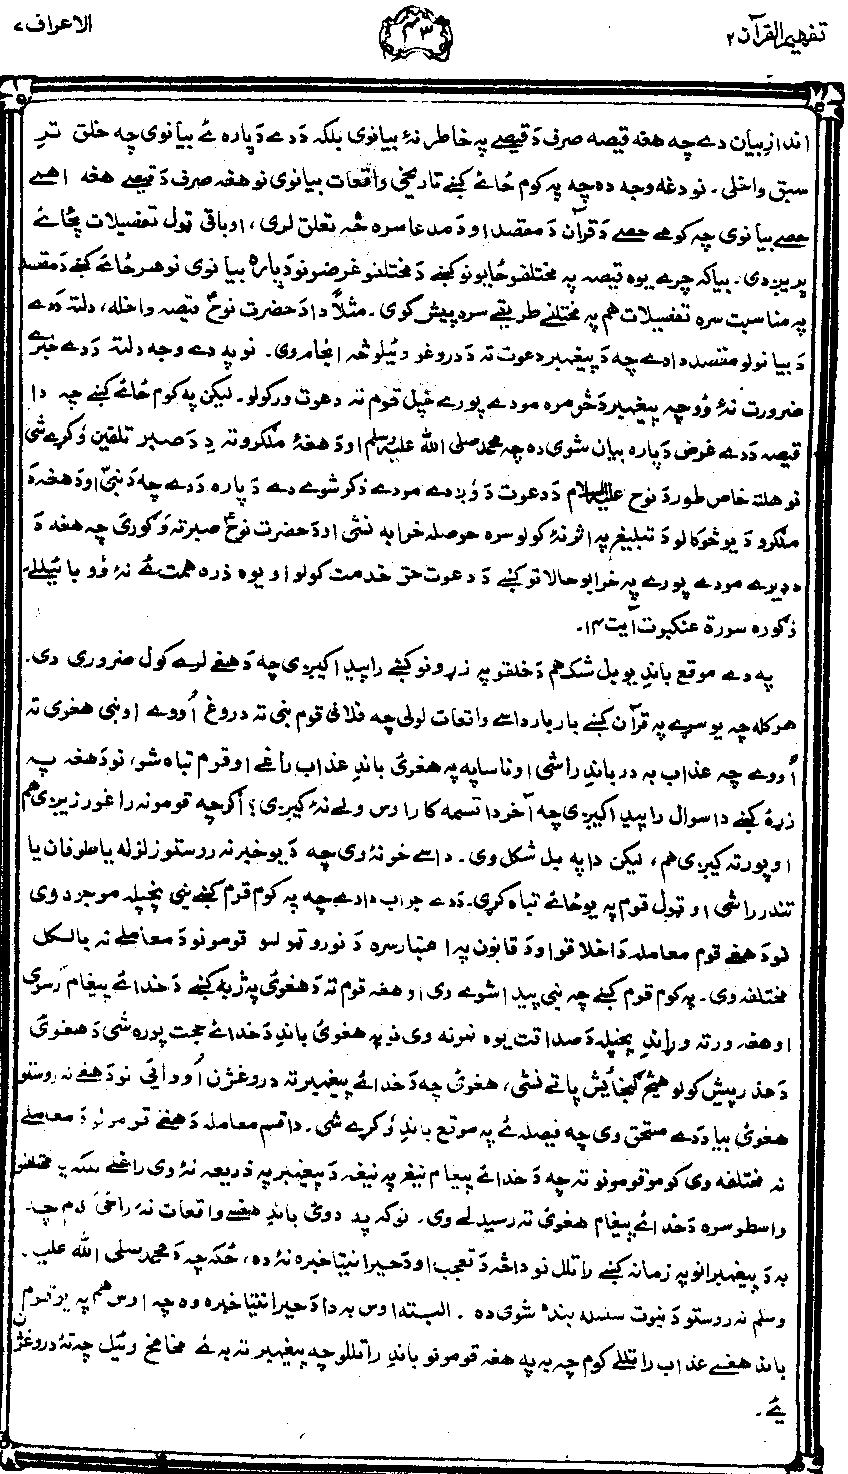 تفهیم القرآن ۲
۴۳
الاعراف ۷
انداز بیان دے چه هغه قیصه صرف دَ قیصے په خاطر نۀ بیانوی بلکه دَ دے دَپاره ئے بیانوی چه خلق ترِ
سبق واخلی۔ نو دغه وجه ده چه په کوم ځائے کښے تاریخی واقعات بیانوی نو هغه صرف دَ قیصے هغه اهمے
حصے بیانوی چه کومے حصے دَ قرآن دَ مقصد او دَ مدعا سره څه تعلق لری، او باقی ټول تفصیلات پځائے
پریږدی۔ بیا که چرے یوه قیصه په مختلفو ځایونو کښے دَ مختلفو غرضونو دَپاره بیانوی نو هر ځائے کښے دَ مقصد
په مناسبت سره تفصیلات هم په مختلفے طریقے سره پیش کوی۔ مثلاً دا دَ حضرت نوحؑ قیصه واخله، دلته دَ دے
دَ بیانولو مقصد دا دے چه دَ پیغمبر دعوت ته دَ دروغو وئیلو څه انجام وی۔ نو په دے وجه دلته دَ دے خبرے
ضرورت نۀ وُو چه پیغمبر دَ څومره مودے پورے خپل قوم ته دعوت ورکولو۔ لیکن په کوم ځائے کښے چه دا
قیصه دَ دے غرض دَپاره بیان شوی ده چه محمد صلی الله علیه وسلم او دَ هغۀ ملګرو ته دِ دَ صبر تلقین وُکړے شی
نو هلته خاص طور دَ نوح علیه السلام دَ دعوت دَ وږدے مودے ذکر شوے دے دَپاره دَ دے چه دَ نبیؐ او دَ هغه دَ
ملګرو دَ یو څو کالو دَ تبلیغ په اثر نۀ کولو سره حوصله خرابه نشی او دَ حضرت نوحؑ صبر ته وګوری چه هغه دَ
ډیرے مودے پورے په خرابو حالاتو کښے دَ دعوت حق خدمت کولو او یوه ذره همت ئے نۀ وُو بائیللے
ذکوره سورة عنکبوت آیت ۱۴۔
په دے موقع باندِ یو بل شک هم دَ خلقو په زړونو کښے راپیدا کیږی چه دَ هغے لرے کول ضروری دی۔
هرکله چه یو سړے په قرآن کښے بار بار داسے واقعات لولی چه فلانی قوم نبی ته دروغ اُووے او نبی هغوی ته
اُووے چه عذاب به درباندِ راشی او ناساپه په هغوی باندِ عذاب راغے او قوم تباه شو، نو دَ هغه په
زړۀ کښے دا سوال راپیدا کیږی چه آخر دا قسمه کار اوس ولے نۀ کیږی؟ اګرچه قومونه را غورزیږی هم
او پورته کیږی هم، لیکن دا په بل شکل وی۔ داسے خو نۀ وی چه دَ یو خبر نه روستو زلزله یا طوفان یا
تندر راشی او ټول قوم په یو ځائے تباه کړی۔ دَ دے جواب دا دے چه په کوم قوم کښے نبی پخپله موجود وی
نو دَ هغے قوم معامله دَ اخلاقو او دَ قانون په اعتبار سره دَ نورو ټولو قومونو دَ معاملے نه بالکل
مختلفه وی۔ په کوم قوم کښے چه نبی پیدا شوے وی او هغه قوم ته دَ هغوی په ژبه کښے دَ خدائے پیغام رسوی
او هغه ورته وړاندِ پخپله دَ صداقت یوه نمونه وی نو په هغوی باندِ دَ خدائے حجت پوره شی دَ هغوی
دَ عذر پیش کولو هیڅ ګنجائیش پاتے نشی، هغوی چه دَ خدائے پیغمبر ته دروغژن اُووائی نو دَ هغے نه روستو
هغوی بیا دَ دے مستحق وی چه فیصله ئے په موقع باندِ وُکړے شی۔ دا قسم معامله دَ هغے قومونو دَ معاملے
نه مختلفه وی کومو قومونو ته چه دَ خدائے پیغام نیغ په نیغه دَ پیغمبر په ذریعه نۀ وی راغلے بلکه په مختلفو
واسطو سره دَ خدائے پیغام هغوی ته رسیدلے وی۔ نو که په دوئ باندِ هغسے واقعات نۀ راځی کوم چه
به دَ پیغمبرانو په زمانه کښے راتلل نو دا څه دَ تعجب او دَ حیرانتیا خبره نۀ ده، ځکه چه دَ محمد صلی الله علیه
وسلم نه روستو دَ نبوت سلسله بنده شوی ده۔ البته اوس به دا دَ حیرانتیا خبره وه چه اوس هم په یو قوم
باندِ هغسے عذاب راتللے کوم چه به په هغه قومونو باندِ راتللو چه پیغمبر ته به ئے مخامخ وئیل چه ته دروغژن
ئے۔